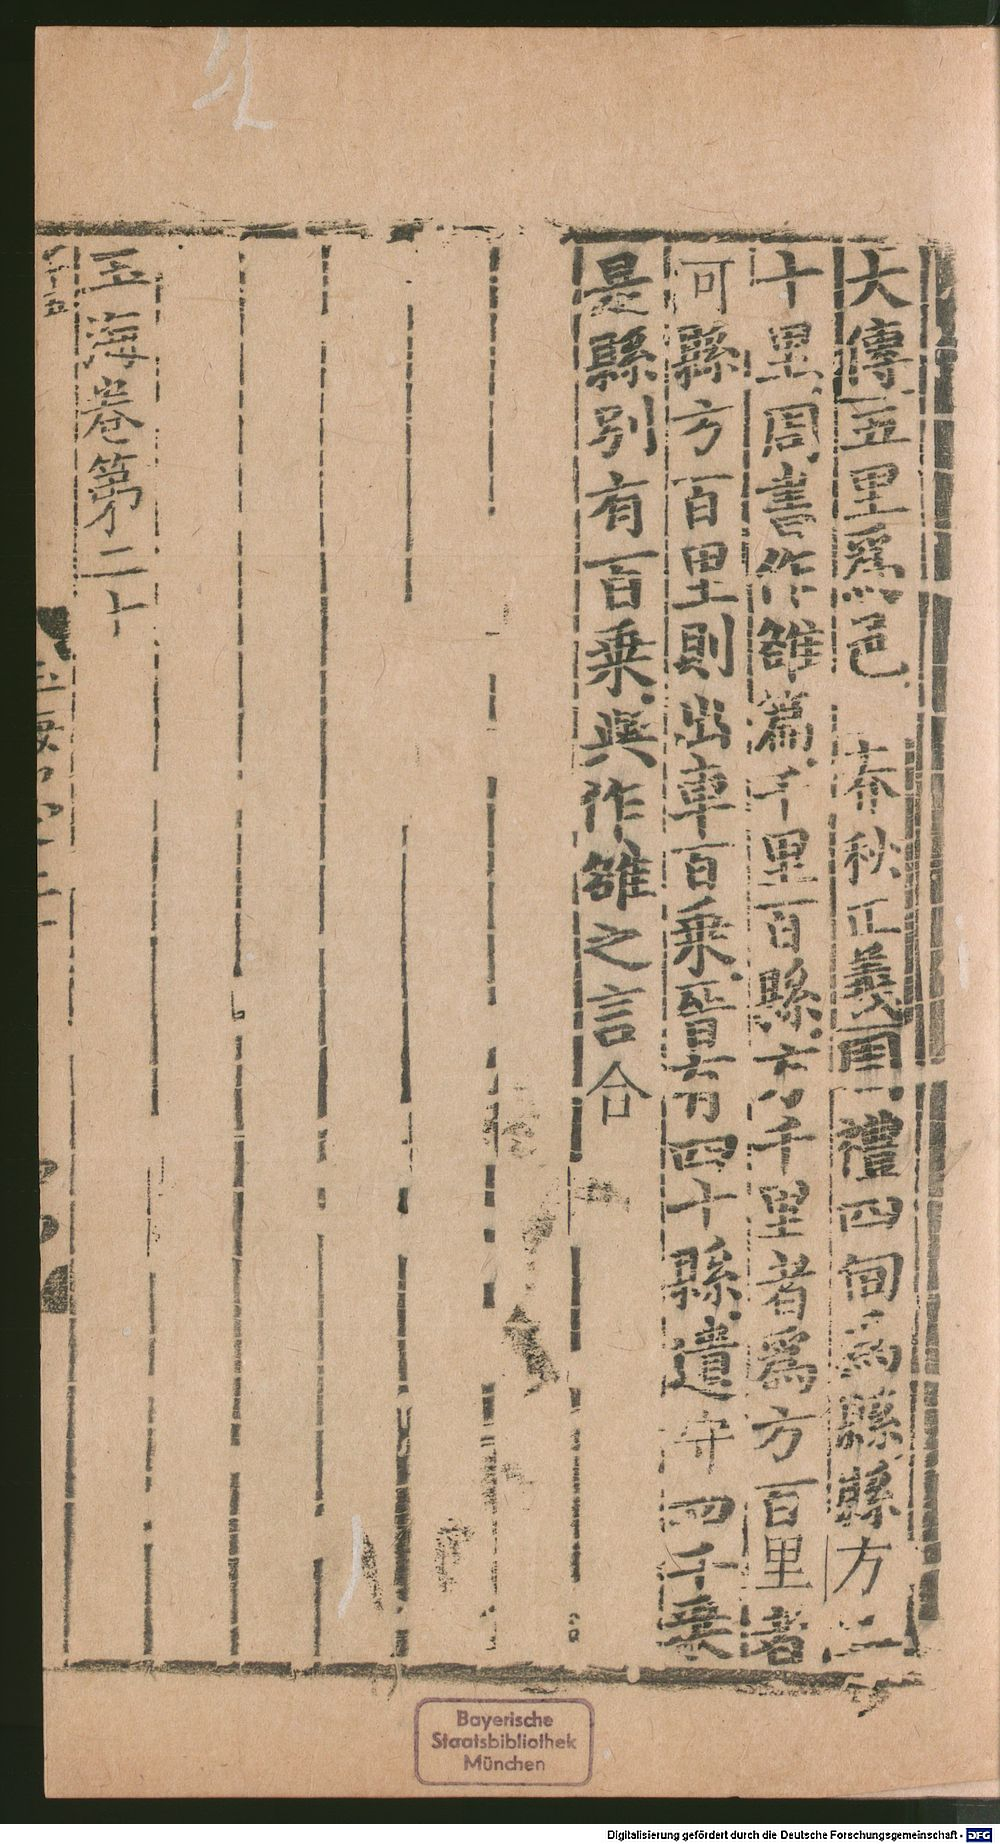 大傳五里爲邑　春秋正義周禮四甸爲縣縣方二
十里周書作雒篇千里百縣方千里者爲方百里者
可縣方百里則出車百乘晉有四十縣遺守四千乘
是縣別有百乘與作雒之言合
玉海卷第二十
Bayerische
Staatsbibliothek
München
Digitalisierung gefördert durch die Deutsche Forschungsgemeinschaft - DFG